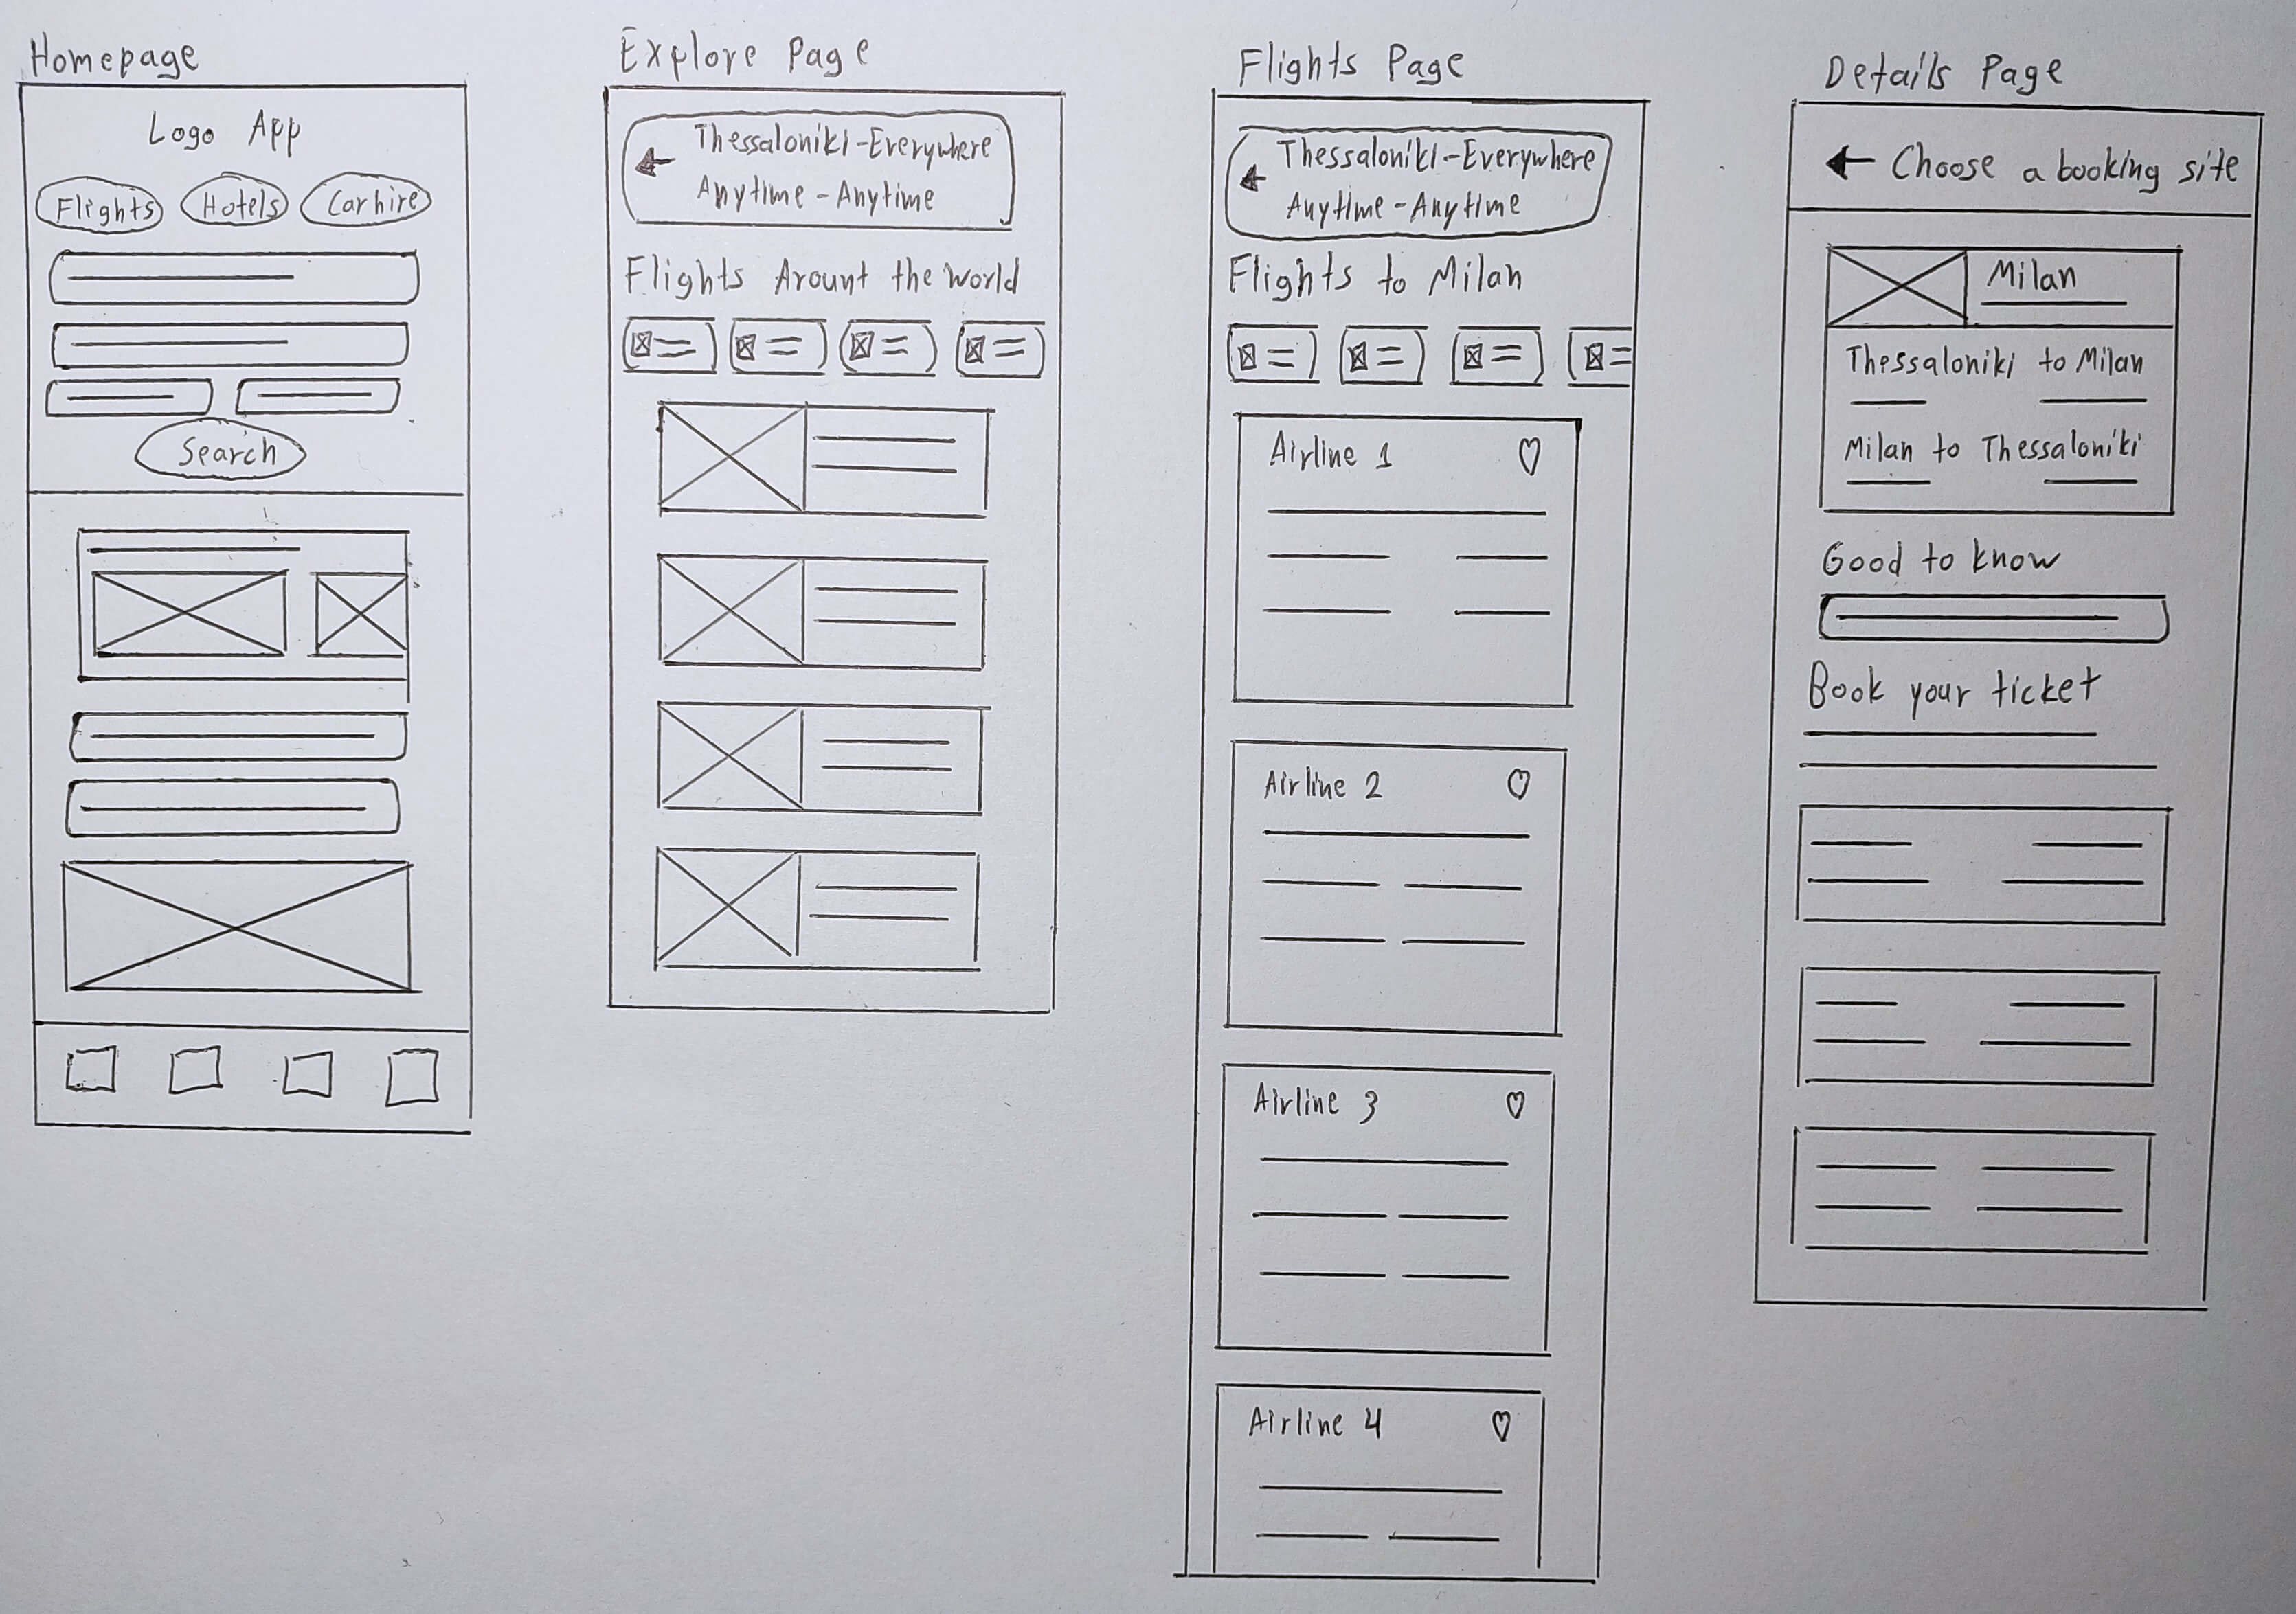 Homepage
Logo App
Flights
Hotels
Car hire
Search
Explore Page
Thessaloniki-Everywhere
Anytime-Anytime
Flights Arount the World
Flights Page
Thessaloniki-Everywhere
Anytime-Anytime
Flights to Milan
Airline 1
Airline 2
Airline 3
Airline 4
Details Page
Choose a booking site
Milan
Thessaloniki to Milan
Milan to Thessaloniki
Good to know
Book your ticket